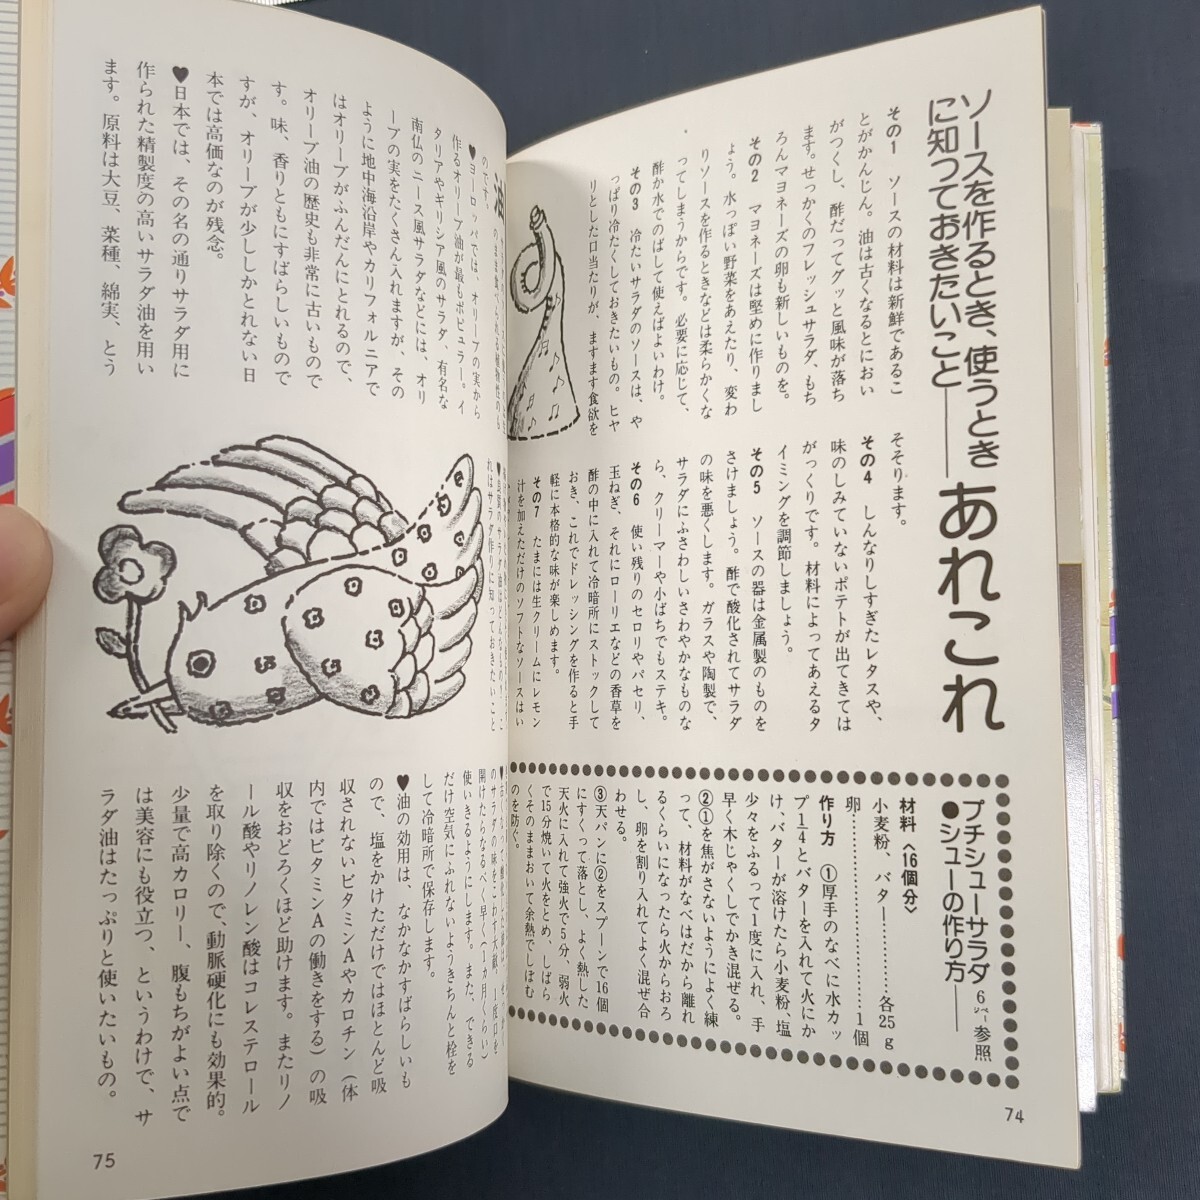 ソースを作るとき、使うとき
に知っておきたいこと――あれこれ
その1　ソースの材料は新鮮であるこ
とがかんじん。油は古くなるとにおい
がつくし、酢だってグッと風味が落ち
ます。せっかくのフレッシュサラダ、もち
ろんマヨネーズの卵も新しいものを。
その2　マヨネーズは堅めに作りまし
ょう。水っぽい野菜をあえたり、変わ
りソースを作るときなどは柔らかくな
ってしまうからです。必要に応じて、
酢か水でのばして使えばよいわけ。
その3　冷たいサラダのソースは、や
っぱり冷たくしておきたいもの。ヒヤ
リとした口当たりが、ますます食欲を
そそります。
その4　しんなりしすぎたレタスや、
味のしみていないポテトが出てきては
がっくりです。材料によってあえるタ
イミングを調節しましょう。
その5　ソースの器は金属製のものを
さけましょう。酢で酸化されてサラダ
の味を悪くします。ガラスや陶製で、
サラダにふさわしいさわやかなものな
ら、クリーマーや小ばちでもステキ。
その6　使い残りのセロリやパセリ、
玉ねぎ、それにローリエなどの香草を
酢の中に入れて冷暗所にストックして
おき、これでドレッシングを作ると手
軽に本格的な味が楽しめます。
その7　たまには生クリームにレモン
汁を加えただけのソフトなソースはい
プチシューサラダ 6ページ参照
●シューの作り方――
材料〈16個分〉
小麦粉、バター…………各25g
卵………………………1個
作り方　①厚手のなべに水カッ
プ1/4とバターを入れて火にか
け、バターが溶けたら小麦粉、塩
少々をふるって1度に入れ、手
早く木じゃくしでかき混ぜる。
②①を焦がさないようによく練
って、材料がなべはだから離れ
るくらいになったら火からおろ
し、卵を割り入れてよく混ぜ合
わせる。
③天パンに②をスプーンで16個
にすくって落とし、よく熱した
天火に入れて強火で5分、弱火
で15分焼いて火をとめ、しばら
くそのままおいて余熱でしぼむ
のを防ぐ。
74
油
のです。
♥ヨーロッパでは、オリーブの実から
作るオリーブ油が最もポピュラー。イ
タリアやギリシア風のサラダ、有名な
南仏のニース風サラダなどには、オリ
ーブの実をたくさん入れますが、その
ように地中海沿岸やカリフォルニアで
はオリーブがふんだんにとれるので、
オリーブ油の歴史も非常に古いもので
す。味、香りともにすばらしいもので
すが、オリーブが少ししかとれない日
本では高価なのが残念。
♥日本では、その名の通りサラダ用に
作られた精製度の高いサラダ油を用い
ます。原料は大豆、菜種、綿実、とう
れはサラダ作りに知っておきたいこと
開けたらなるべく早く(1カ月くらい)
使いきるようにします。また、できる
だけ空気にふれないようきちんと栓を
して冷暗所で保存します。
♥油の効用は、なかなかすばらしいも
ので、塩をかけただけではほとんど吸
収されないビタミンAやカロチン(体
内ではビタミンAの働きをする)の吸
収をおどろくほど助けます。またリノ
ール酸やリノレン酸はコレステロール
を取り除くので、動脈硬化にも効果的。
少量で高カロリー、腹もちがよい点で
は美容にも役立つ、というわけで、サ
ラダ油はたっぷりと使いたいもの。
75